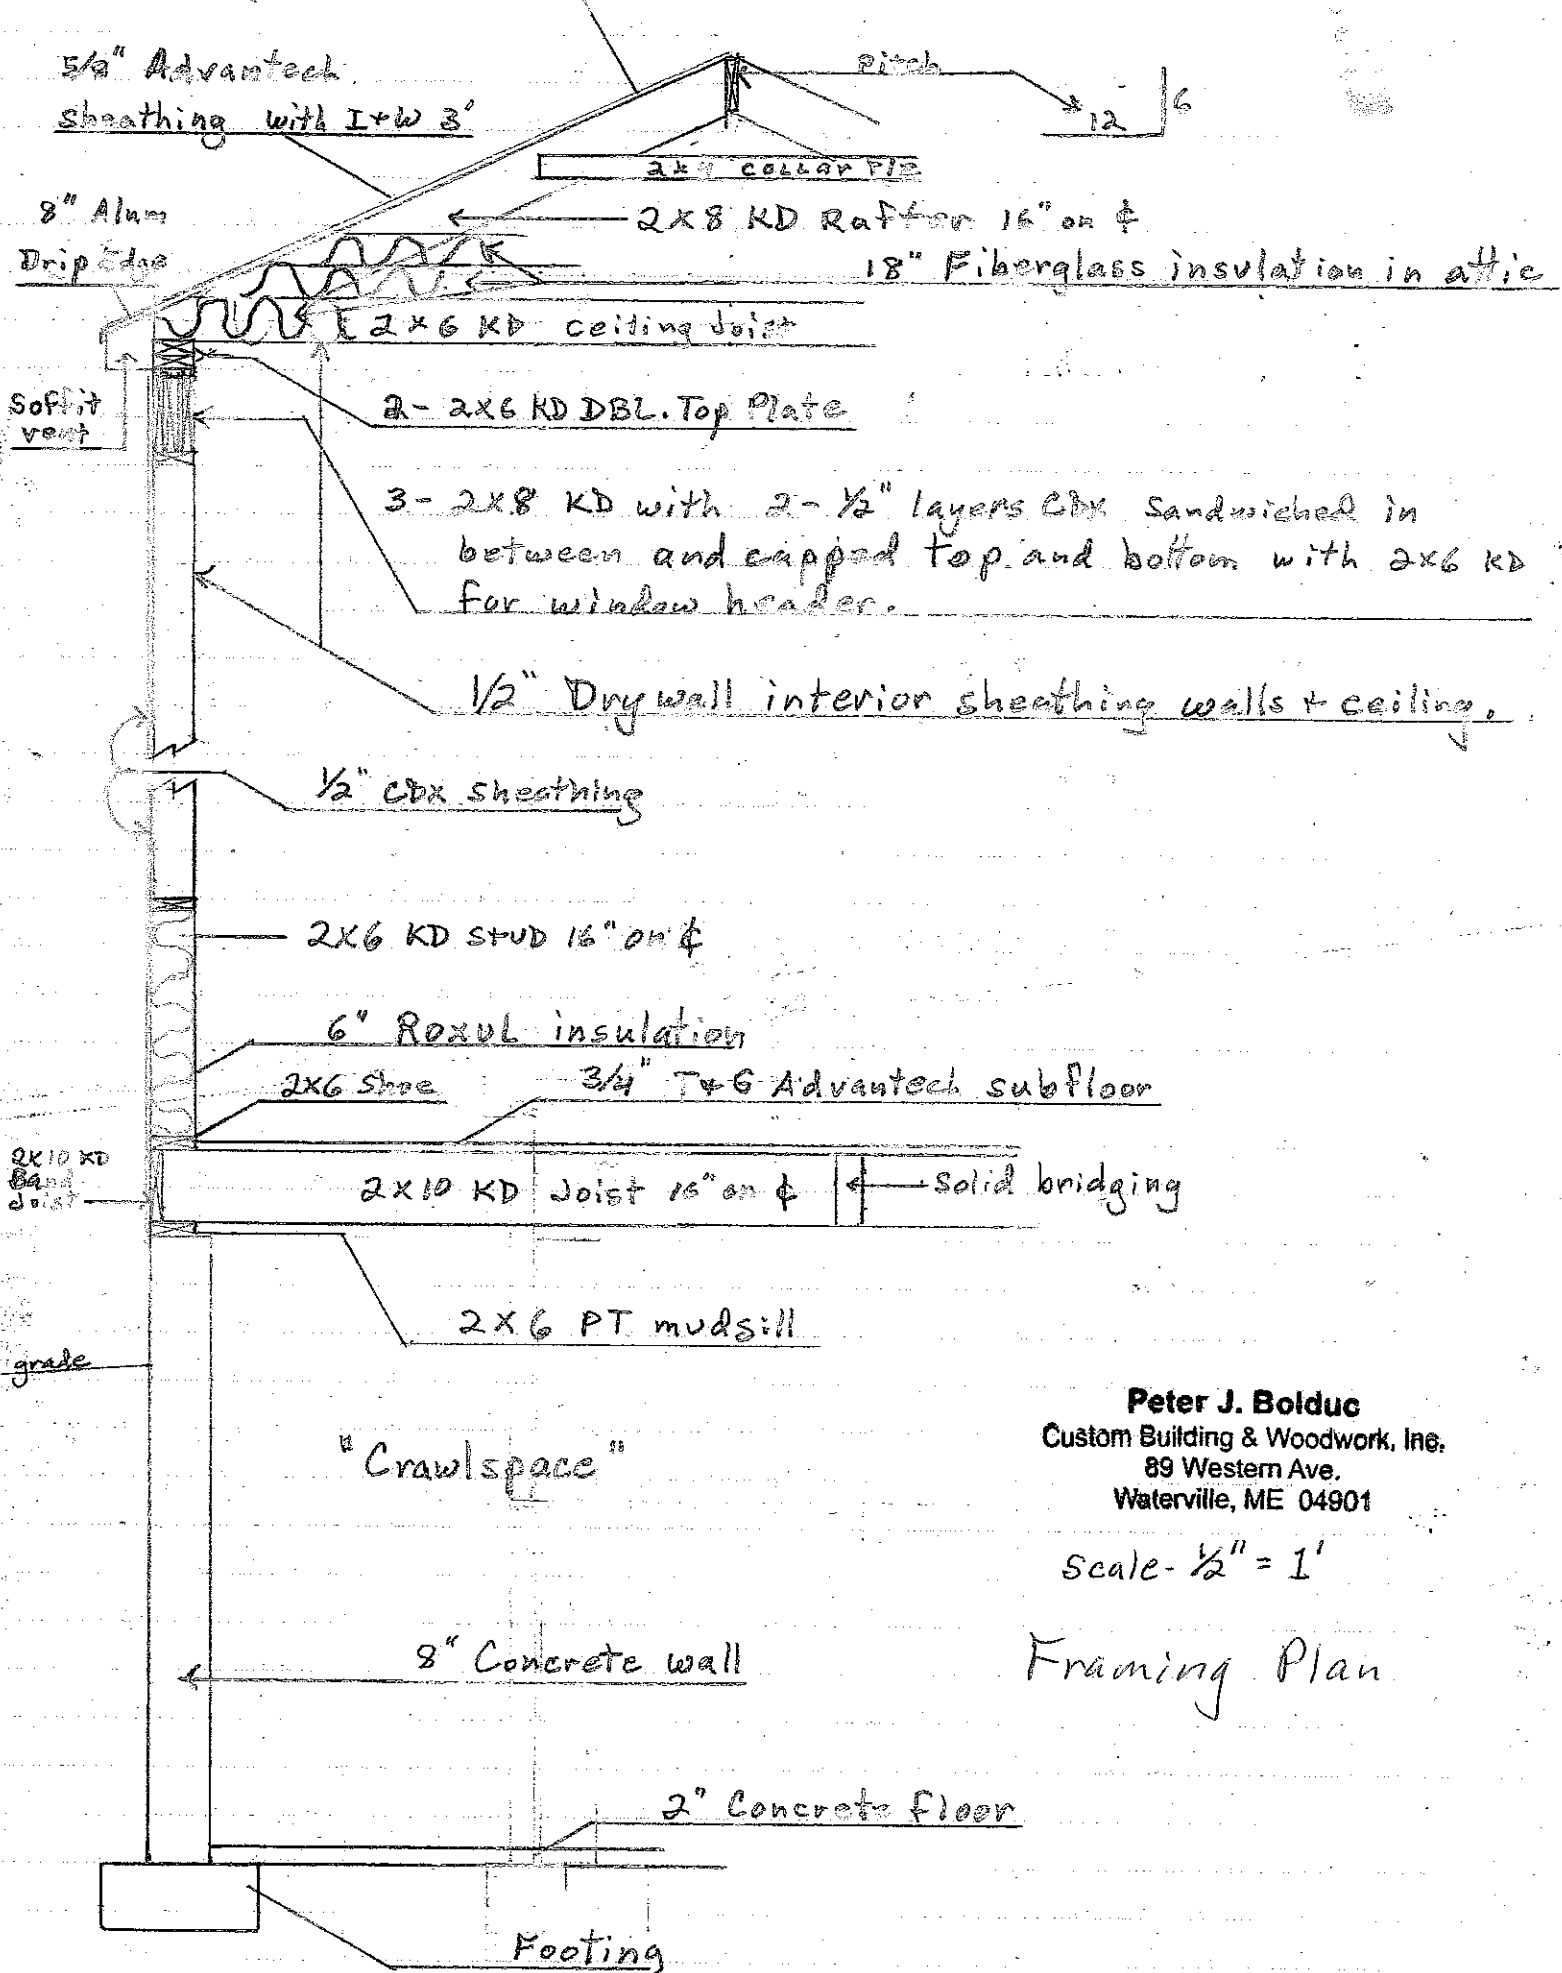 5/8" Advantech
Sheathing with I+W 3'
Pitch
12
6
2x4 COLLAR
8" Alum
Drip Edge
2X8 KD Rafter 16" on ¢
18" Fiberglass insulation in attic
2x6 KD ceiling Joist
Soffit
vent
2- 2X6 KD DBL. Top Plate
3- 2X8 KD with 2- 1/2" layers CDX Sandwiched in
between and capped top and bottom with 2x6 KD
for window header.
1/2" Drywall interior sheathing walls + ceiling.
1/2" CDX sheathing
2X6 KD STUD 16" on ¢
6" ROXUL insulation
2X6 Shoe
3/4" T+G Advantech subfloor
2X10 KD
Band
Joist
2X10 KD Joist 16" on ¢
Solid bridging
2X6 PT mudsill
grade
"Crawlspace"
Peter J. Bolduc
Custom Building & Woodwork, Inc.
89 Western Ave.
Waterville, ME 04901
Scale- 1/2" = 1'
Framing Plan
8" Concrete wall
2" Concrete floor
Footing